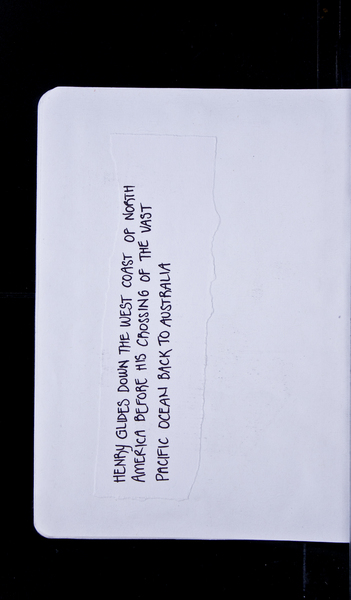 HENRY GLIDES DOWN THE WEST COAST OF NORTH
AMERICA BEFORE HIS CROSSING OF THE VAST
PACIFIC OCEAN BACK TO AUSTRALIA